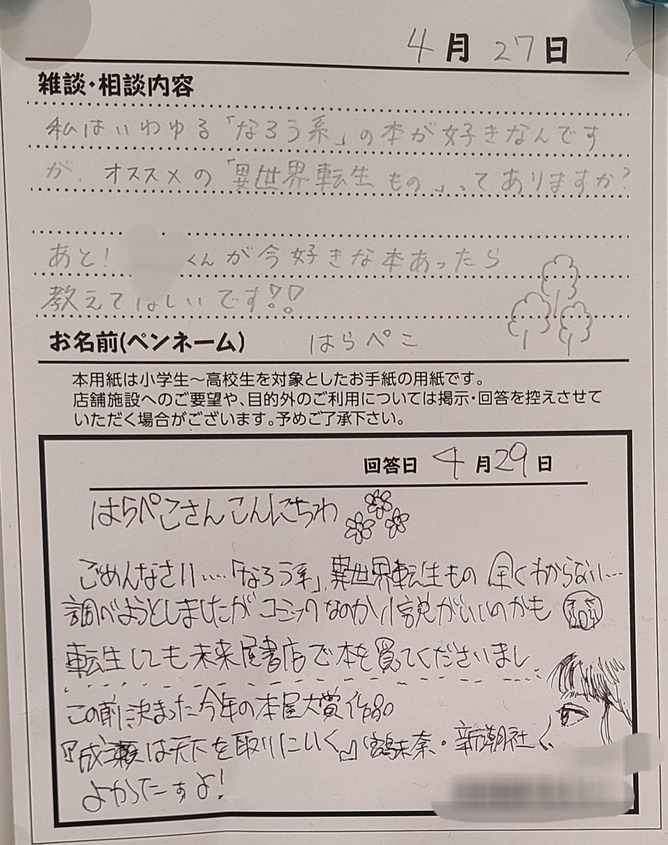 4月27日
雑談・相談内容
私はいわゆる「なろう系」の本が好きなんです
が、オススメの「異世界転生もの」ってありますか?
あと! くんが今好きな本あったら
教えてほしいです!?
お名前(ペンネーム) はらぺこ
本用紙は小学生～高校生を対象としたお手紙の用紙です。
店舗施設へのご要望や、目的外のご利用については掲示・回答を控えさせて
いただく場合がございます。予めご了承下さい。
回答日 4月29日
はらぺこさんこんにちわ
ごめんなさい....「なろう系」異世界転生もの 全くわからない...
調べようとしましたがコミックなのか小説がいいのかも
転生しても未来屋書店で本を買てくださいまし
この前決まった今年の本屋大賞作
『成瀬は天下を取りにいく』宮島未奈・新潮社
よかたーすよ!